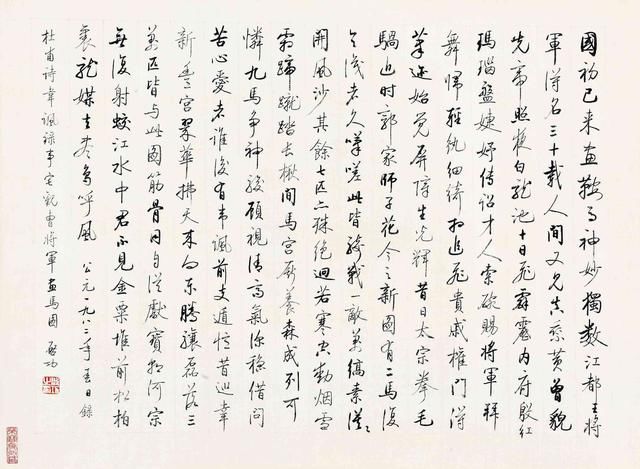 國初已來畫鞍馬神妙獨數江都王將
軍得名三十載人間又見真乘黃曾貌
先帝照夜白龍池十日飛霹靂內府殷紅
瑪瑙盤婕妤傳詔才人索碗賜將軍拜
舞歸輕紈細綺相追飛貴戚權門得
筆迹始覺屏障生光輝昔日太宗拳毛
騧近時郭家師子花今之新圖有二馬復
令識者久嘆嗟此皆騎戰一敵萬縞素漠漠
開風沙其餘七匹亦殊絕迥若寒空動烟雪
霜蹄蹴踏長楸間馬官廝養森成列可
憐九馬爭神駿顧視清高氣深穩借問
苦心愛者誰後有韋諷前支遁憶昔巡幸
新豐宮翠華拂天來向東騰驤磊落三
萬匹皆与此圖筋骨同自從獻寶朝河宗
無復射蛟江水中君不見金粟堆前松柏
裏龍媒去盡鳥呼風 公元一九八二年日錄
杜甫詩韋諷錄事宅觀曹將軍畫馬圖 啟功